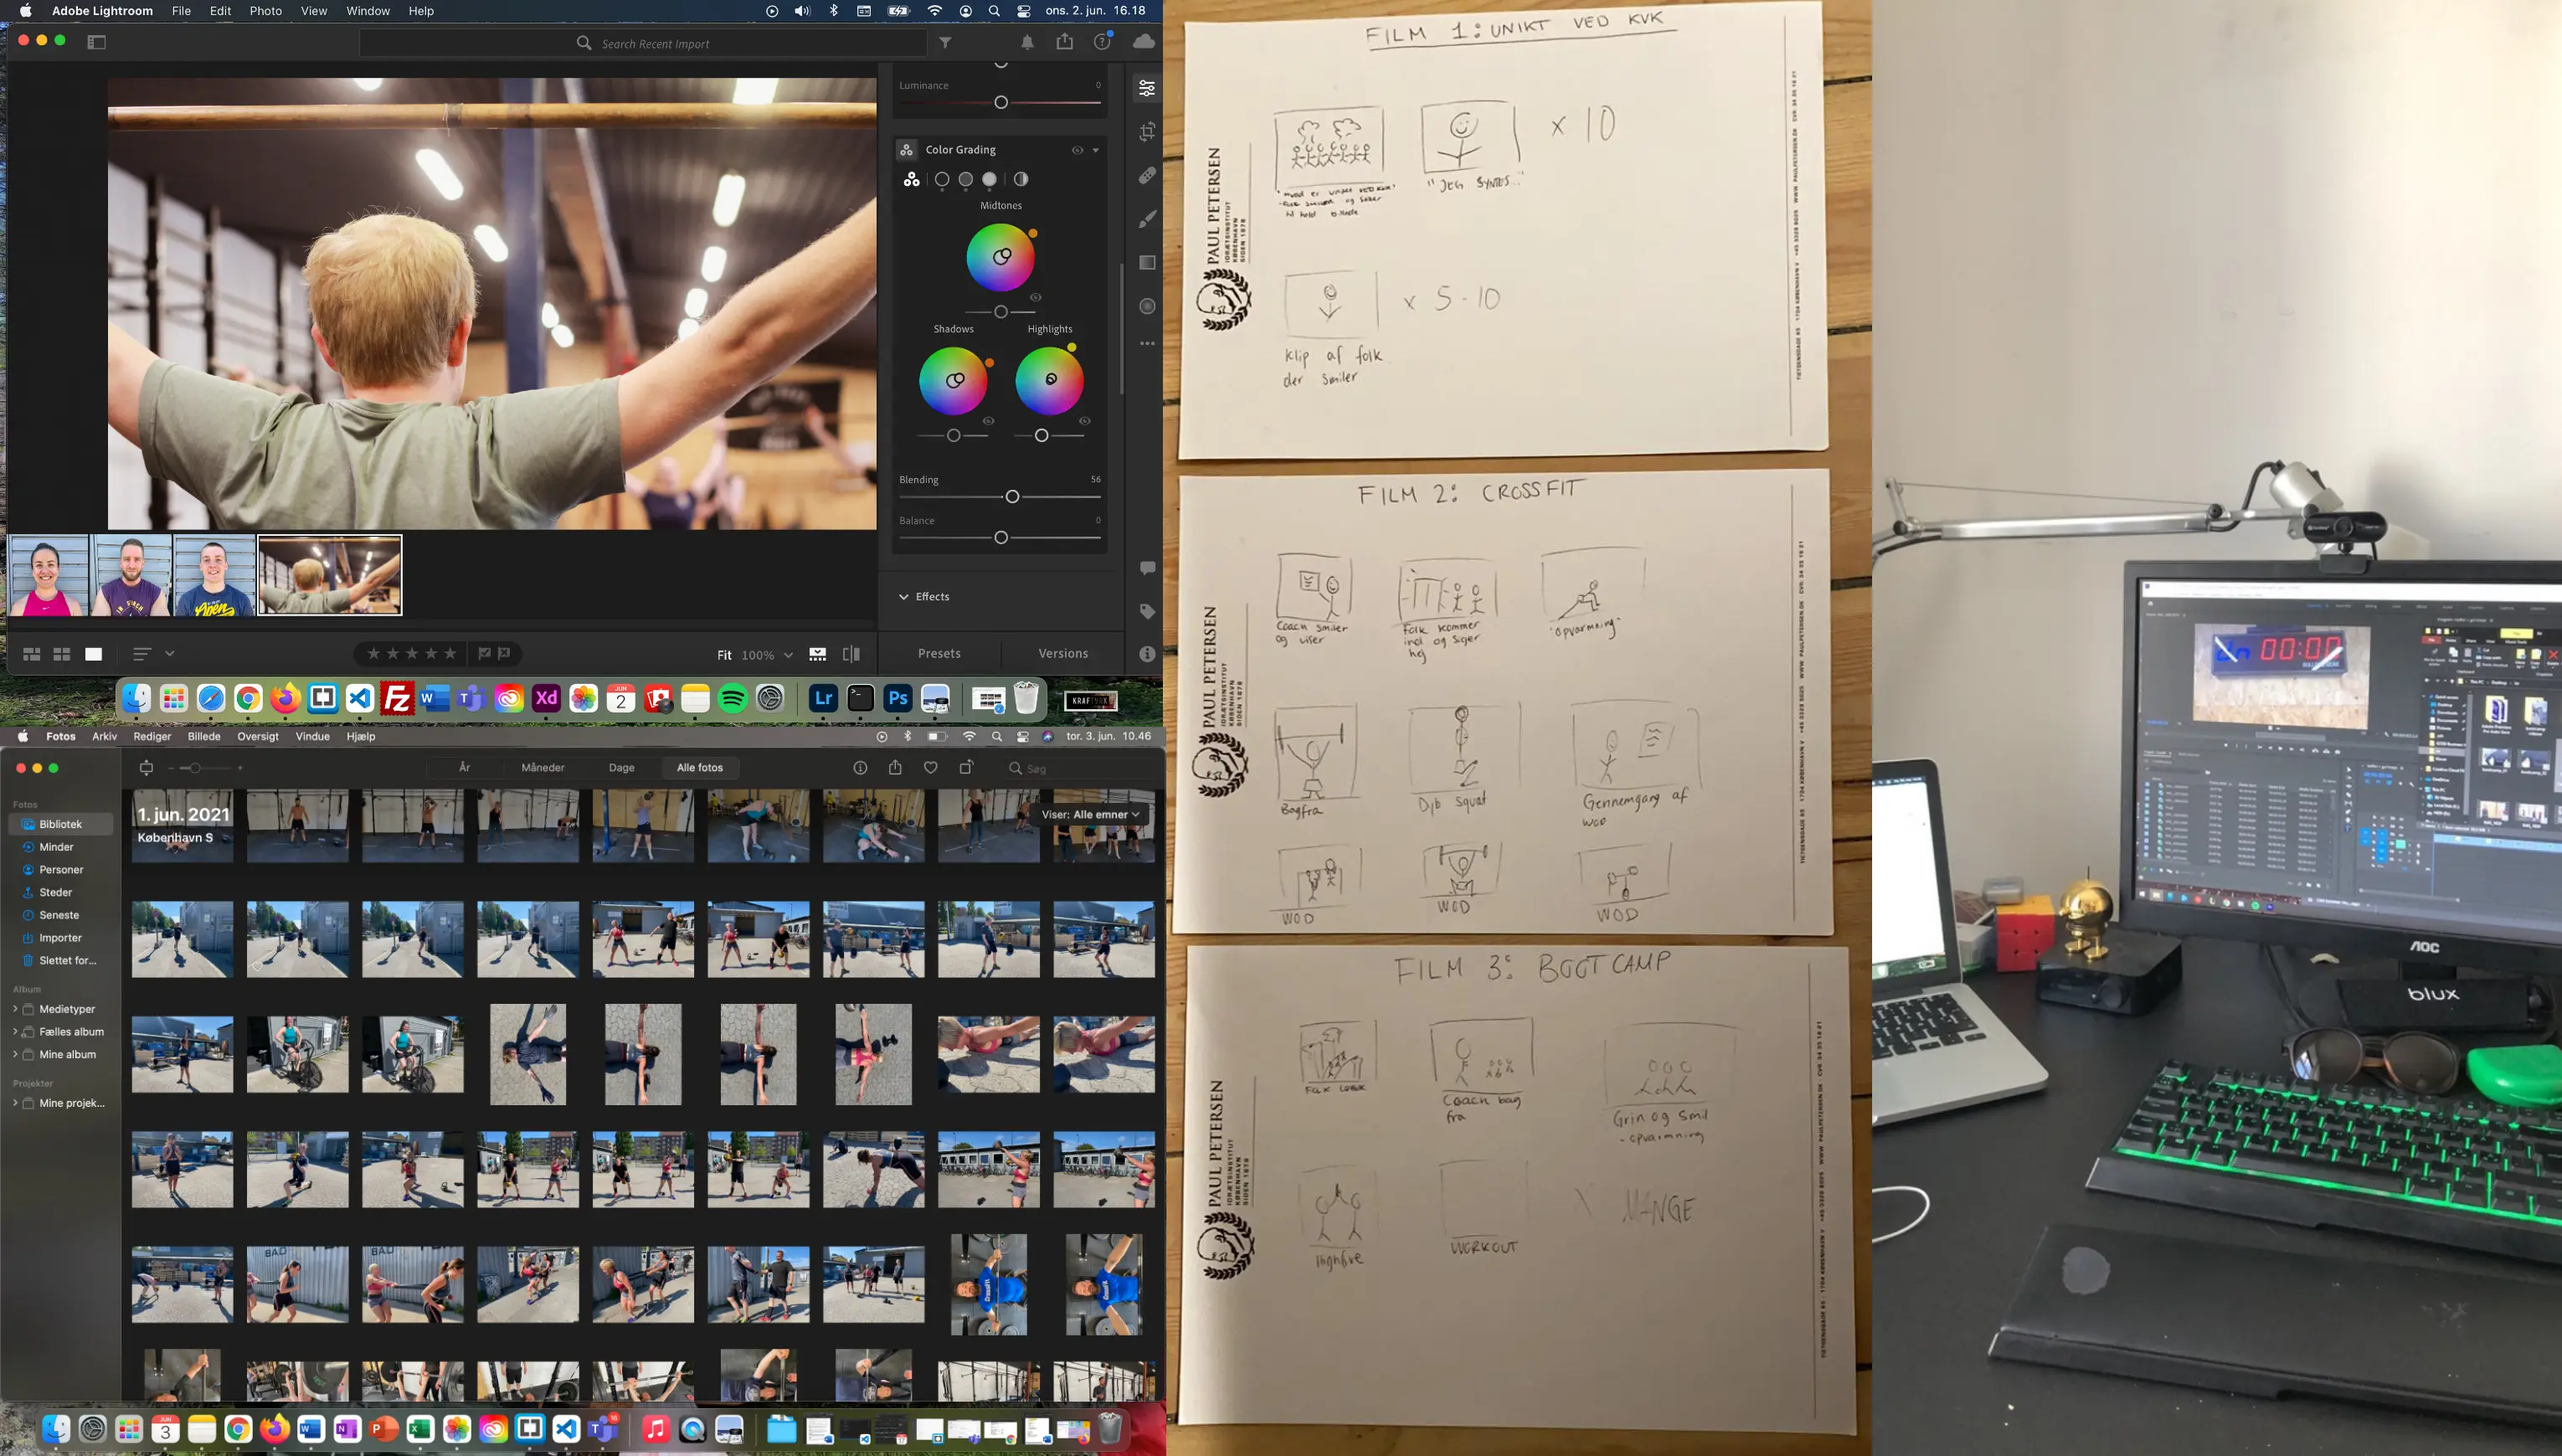 Adobe Lightroom File Edit Photo View Window Help
ons. 2. jun. 16.18
Search Recent Import
Luminance 0
Color Grading
Midtones
Shadows Highlights
Blending 56
Balance 0
Effects
Fit 100%
Presets Versions
Fotos Arkiv Rediger Billede Oversigt Vindue Hjælp
tor. 3. jun. 10.46
År Måneder Dage Alle fotos
Søg
Fotos
Bibliotek
Minder
Personer
Steder
Seneste
Importer
Slettet for...
Album
Medietyper
Fælles album
Mine album
Projekter
Mine projek...
1. jun. 2021
København S
Viser: Alle emner
FILM 1: UNIKT VED KVK
x 10
"JEG SYNTES.."
x 5-10
Klip af folk
der smiler
PAUL PETERSEN
IDRÆTSINSTITUT
KØBENHAVN
SIDEN 1878
FILM 2: CROSSFIT
Coach smiler
og viser
Folk kommer
ind og siger
hej
"opvarmning"
Bagfra
Dyb squat
Gennemgang af
WOD
WOD
WOD
WOD
PAUL PETERSEN
IDRÆTSINSTITUT
KØBENHAVN
SIDEN 1878
FILM 3: BOOTCAMP
Coach bag
fra
Grin og smil
- opvarmning
Highfive
WORKOUT
X MANGE
PAUL PETERSEN
IDRÆTSINSTITUT
KØBENHAVN
SIDEN 1878
00:00
AOC
blux